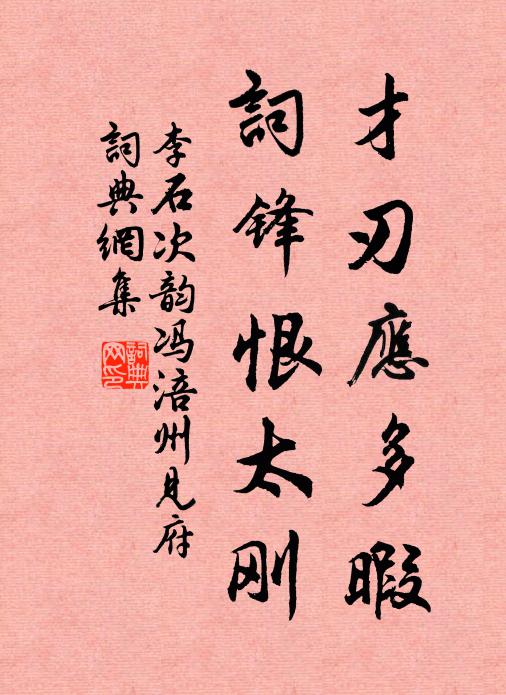 才刃應多暇
詞鋒恨太刚
李石次韵冯涪州見府
詞典網集
詞典
网印